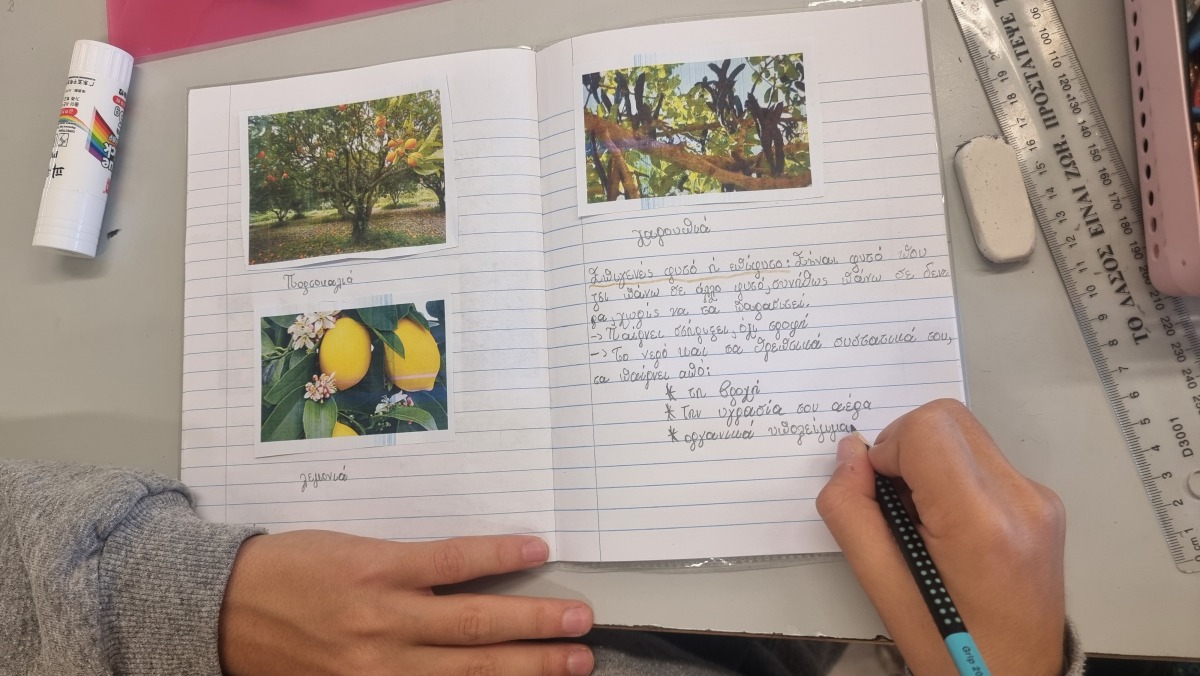 Πορτοκαλιά
λεμονιά
χαρουπιά
Επιγενές φυτό ή επίφυτο: Είναι φυτό που
ζει πάνω σε άλλο φυτό, συνήθως πάνω σε δεν-
ρα, χωρίς να τα παρασιτεί.
-> Παίρνει στήριξει, όχι τροφή
-> Το νερό και τα θρεπτικά συστατικά του,
τα παίρνει από:
* τη βροχή
* την υγρασία του αέρα
* οργανικά υπολείμμα
ΤΟ ΔΑΣΟΣ ΕΙΝΑΙ ΖΩΗ. ΠΡΟΣΤΑΤΕΨΤΕ Τ
D3001
Grip 20